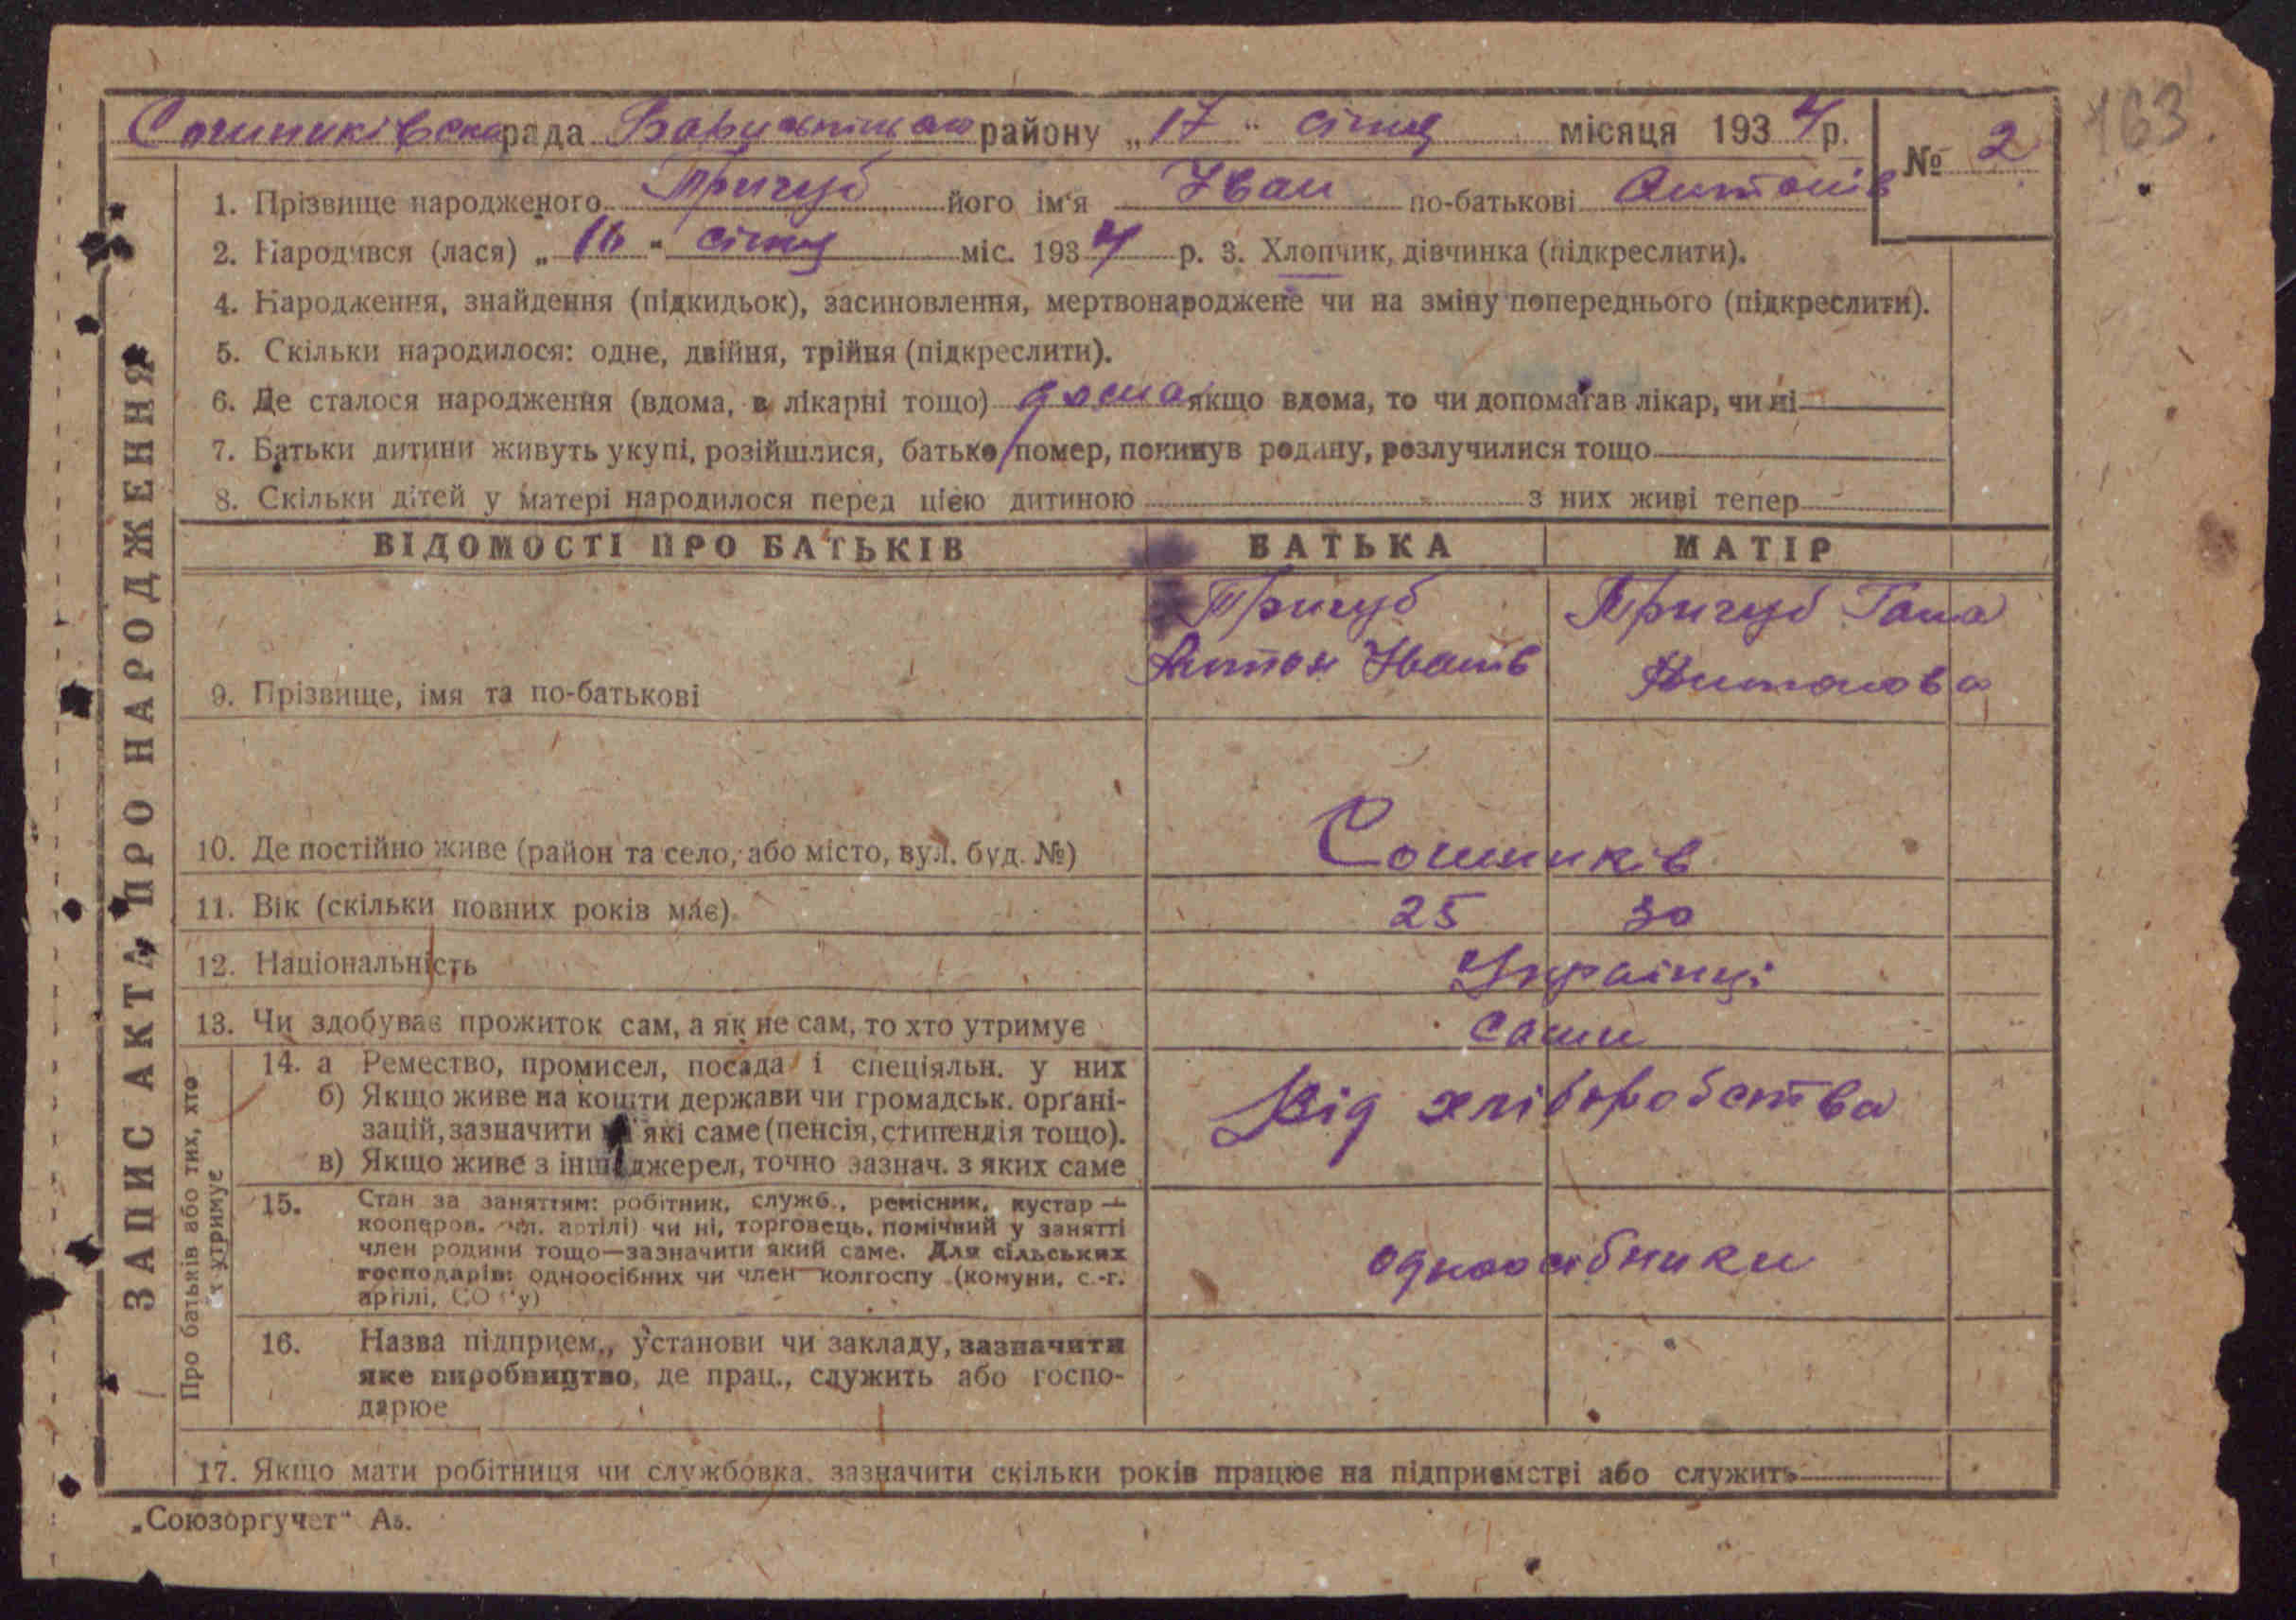 163.
Сошниківська рада Бориспільського району „17“ січня місяця 1934 р.
№ 2
1. Прізвище народженого Тригуб його ім'я Іван по-батькові Антонів
2. Народився (лася) „16“ січня міс. 1934 р. 3. Хлопчик, дівчинка (підкреслити).
4. Народження, знайдення (підкидьок), засиновлення, мертвонароджене чи на зміну попереднього (підкреслити).
5. Скільки народилося: одне, двійня, трійня (підкреслити).
6. Де сталося народження (вдома, в лікарні тощо) дома якщо вдома, то чи допомагав лікар, чи ні
7. Батьки дитини живуть укупі, розійшлися, батько помер, покинув родину, розлучилися тощо
8. Скільки дітей у матері народилося перед цією дитиною з них живі тепер
ЗАПИС АКТА ПРО НАРОДЖЕННЯ
ВІДОМОСТІ ПРО БАТЬКІВ БАТЬКА МАТІР
Тригуб Тригуб Гана
Антон Іванів Антонова
9. Прізвище, імя та по-батькові
10. Де постійно живе (район та село, або місто, вул. буд. №) Сошників
11. Вік (скільки повних років має) 25 30
12. Національність Українці
13. Чи здобуває прожиток сам, а як не сам, то хто утримує сами
Про батьків або тих, хто
їх утримує
14. а Ремество, промисел, посада і спеціяльн. у них
б) Якщо живе на кошти держави чи громадськ. орґані-
зацій, зазначити які саме (пенсія, стипендія тощо).
в) Якщо живе з інш. джерел, точно зазнач. з яких саме
Від хліборобства
15. Стан за заняттям: робітник, служб., ремісник, кустар —
кооперов. чл. артілі) чи ні, торговець, помічний у занятті
член родини тощо—зазначити який саме. Для сільських
господарів: одноосібних чи член колгоспу (комуни, с.-г.
артілі, СОЗ'у)
одноосібники
16. Назва підприєм., установи чи закладу, зазначити
яке виробництво, де прац., служить або госпо-
дарює
17. Якщо мати робітниця чи службовка, зазначити скільки років працює на підприємстві або служить
„Союзоргучет“ А5.